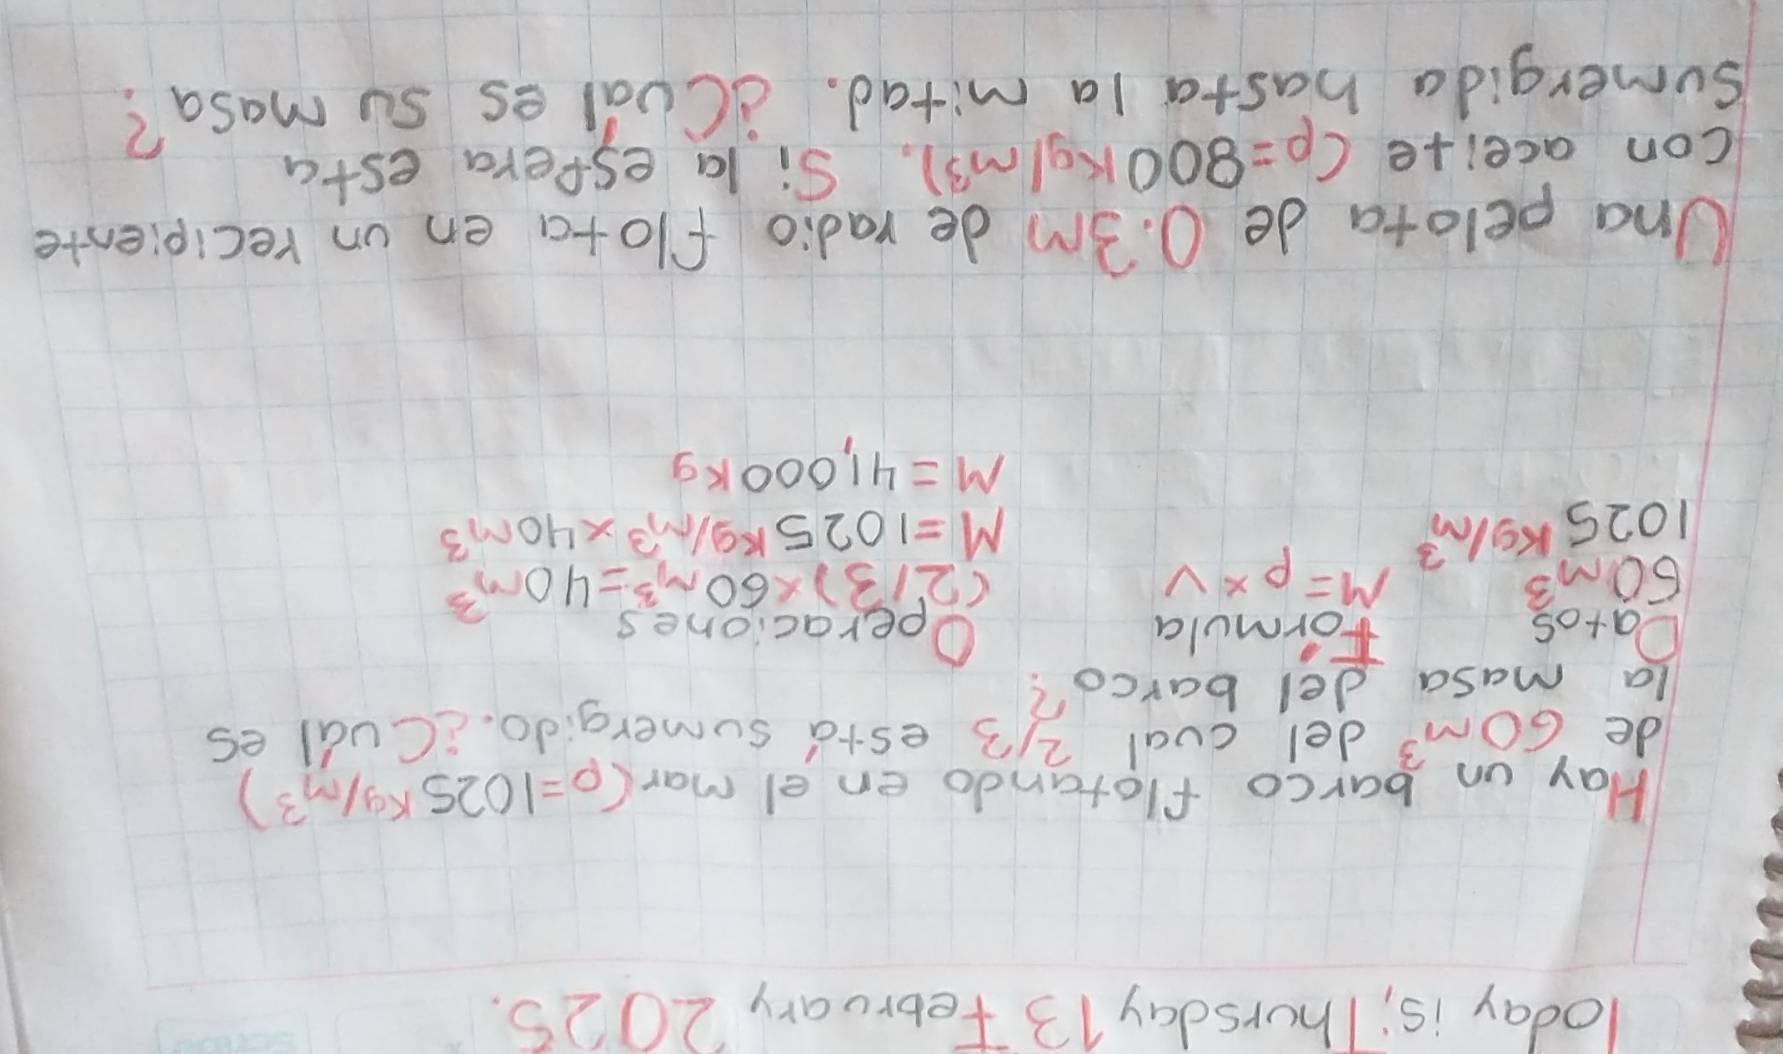 Today is; Thursday 13 February 2025.
Hay un barco flotando en el mar (p=1025 kg/m³)
de 60m³ del cual 2/3 está sumergido. ¿Cuál es
la masa del barco?
Datos Fórmula Operaciones
60m³ M=p×v (2/3)×60m³=40m³
1025 kg/m³ M=1025 kg/m³×40m³
M=41,000kg
Una pelota de 0.3m de radio flota en un recipiente
con aceite (p=800kg/m³). Si la espera esta
sumergida hasta la mitad. ¿Cuál es su masa?